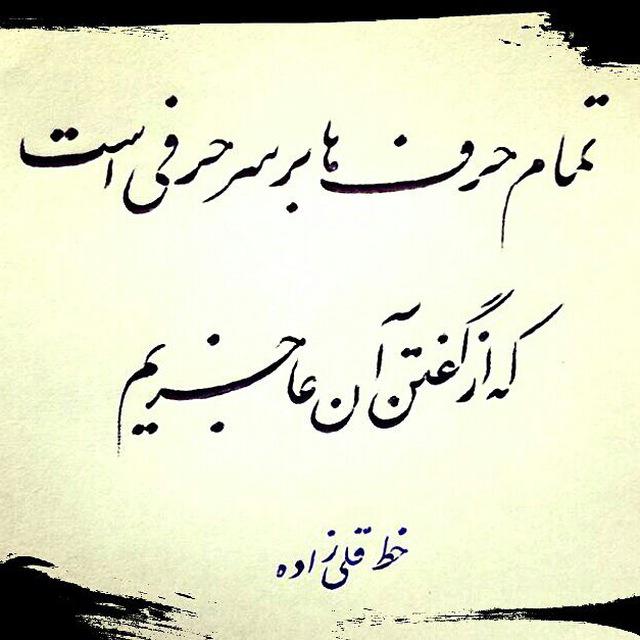 تمام حرف ها بر سر حرفی است
که از گفتن آن عاجزیم
خط قلی زاده